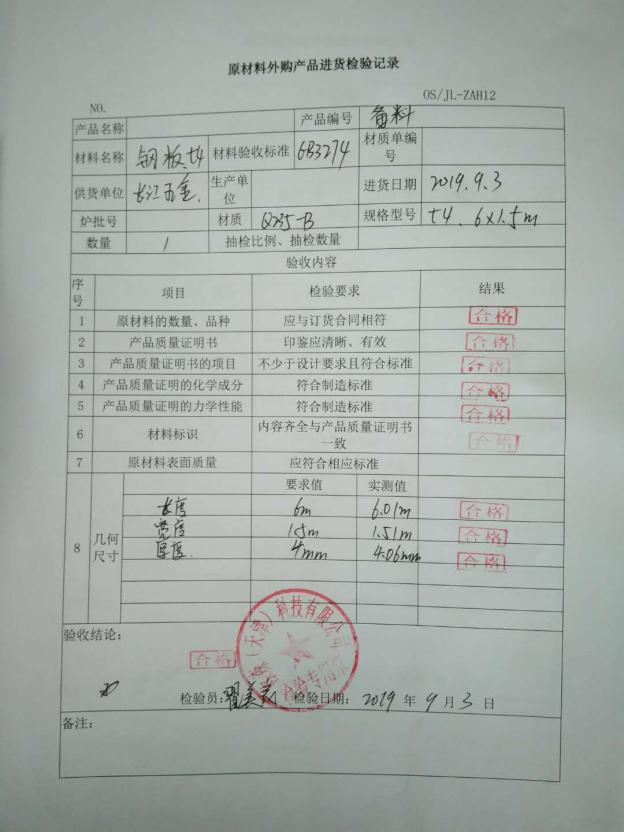 原材料外购产品进货检验记录
OS/JL-ZAH12
NO.
产品名称 产品编号 备料
材料名称 钢板t4 材料验收标准 GB3274 材质单编号
供货单位 长江五金 生产单位 进货日期 2019.9.3
炉批号 材质 Q235-B 规格型号 t4. 6×1.5m
数量 1 抽检比例、抽检数量
验收内容
序号 项目 检验要求 结果
1 原材料的数量、品种 应与订货合同相符 合格
2 产品质量证明书 印鉴应清晰、有效 合格
3 产品质量证明书的项目 不少于设计要求且符合标准 合格
4 产品质量证明的化学成分 符合制造标准 合格
5 产品质量证明的力学性能 符合制造标准 合格
6 材料标识 内容齐全与产品质量证明书一致 合格
7 原材料表面质量 应符合相应标准
8 几何尺寸 要求值 实测值
长度 6m 6.01m 合格
宽度 1.5m 1.51m 合格
厚度 4mm 4.06mm 合格
验收结论:
合格
(天津)科技有限公司
检验专用章
检验员: 检验日期: 2019 年 9 月 3 日
备注: